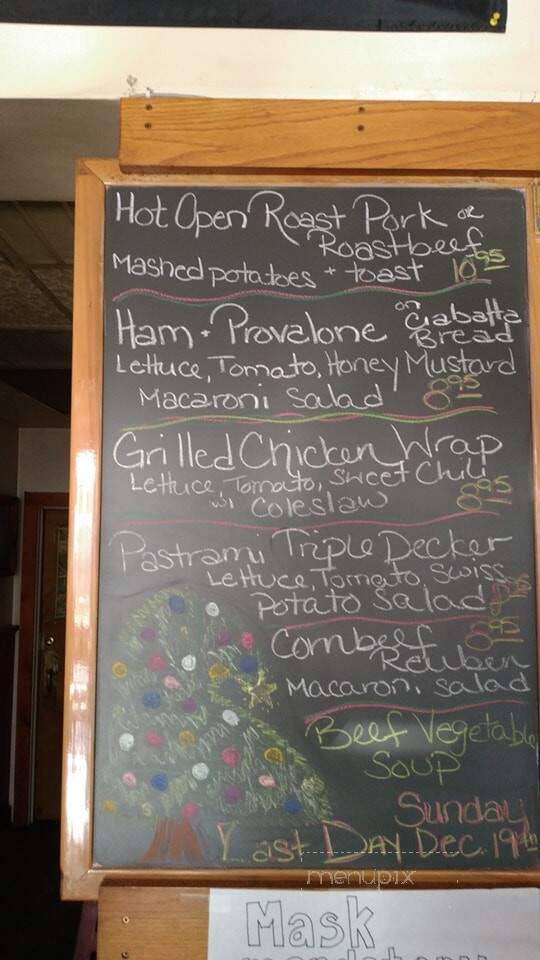 Hot Open Roast Pork or
Roastbeef
Mashed potatoes + toast 10.95
Ham + Provalone on Ciabatta
Bread
Lettuce, Tomato, Honey Mustard
Macaroni Salad 8.95
Grilled Chicken Wrap
Lettuce, Tomato, Sweet Chili
w/ Coleslaw 8.95
Pastrami Triple Decker
Lettuce, Tomato, Swiss
Potato Salad
Cornbeef 8.95
Reuben
Macaroni Salad
Beef Vegetable
Soup
Sunday
Last Day Dec. 19th
menupix
Mask
mandatory